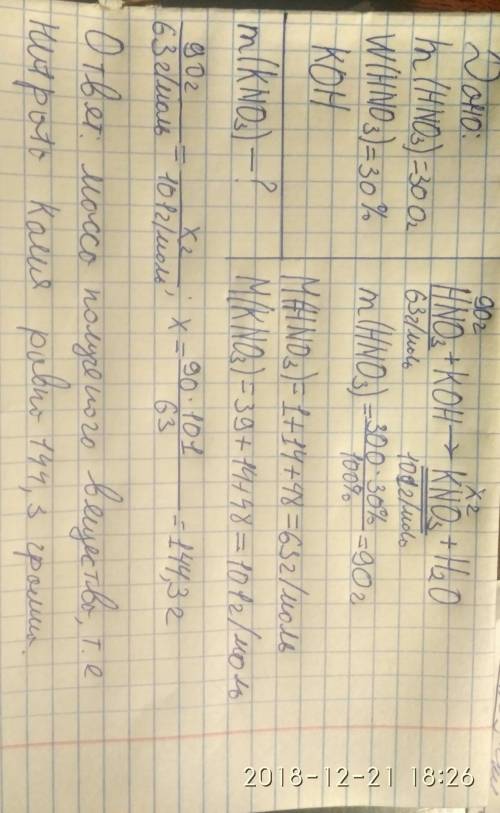 Дано:
m(HNO₃)=300г
W(HNO₃)=30%
KOH
m(KNO₃) – ?
90г xг
HNO₃ + KOH → KNO₃ + H₂O
63г/моль 101г/моль
m(HNO₃) = 300·30% / 100% = 90г
M(HNO₃) = 1+14+48 = 63г/моль
M(KNO₃) = 39+14+48 = 101г/моль
90г / 63г/моль = xг / 101г/моль; x = 90·101 / 63 = 144,3г
Ответ: масса полученого вещества, т.е
Нитрата Калия равно 144,3 грамма.
2018-12-21 18:26